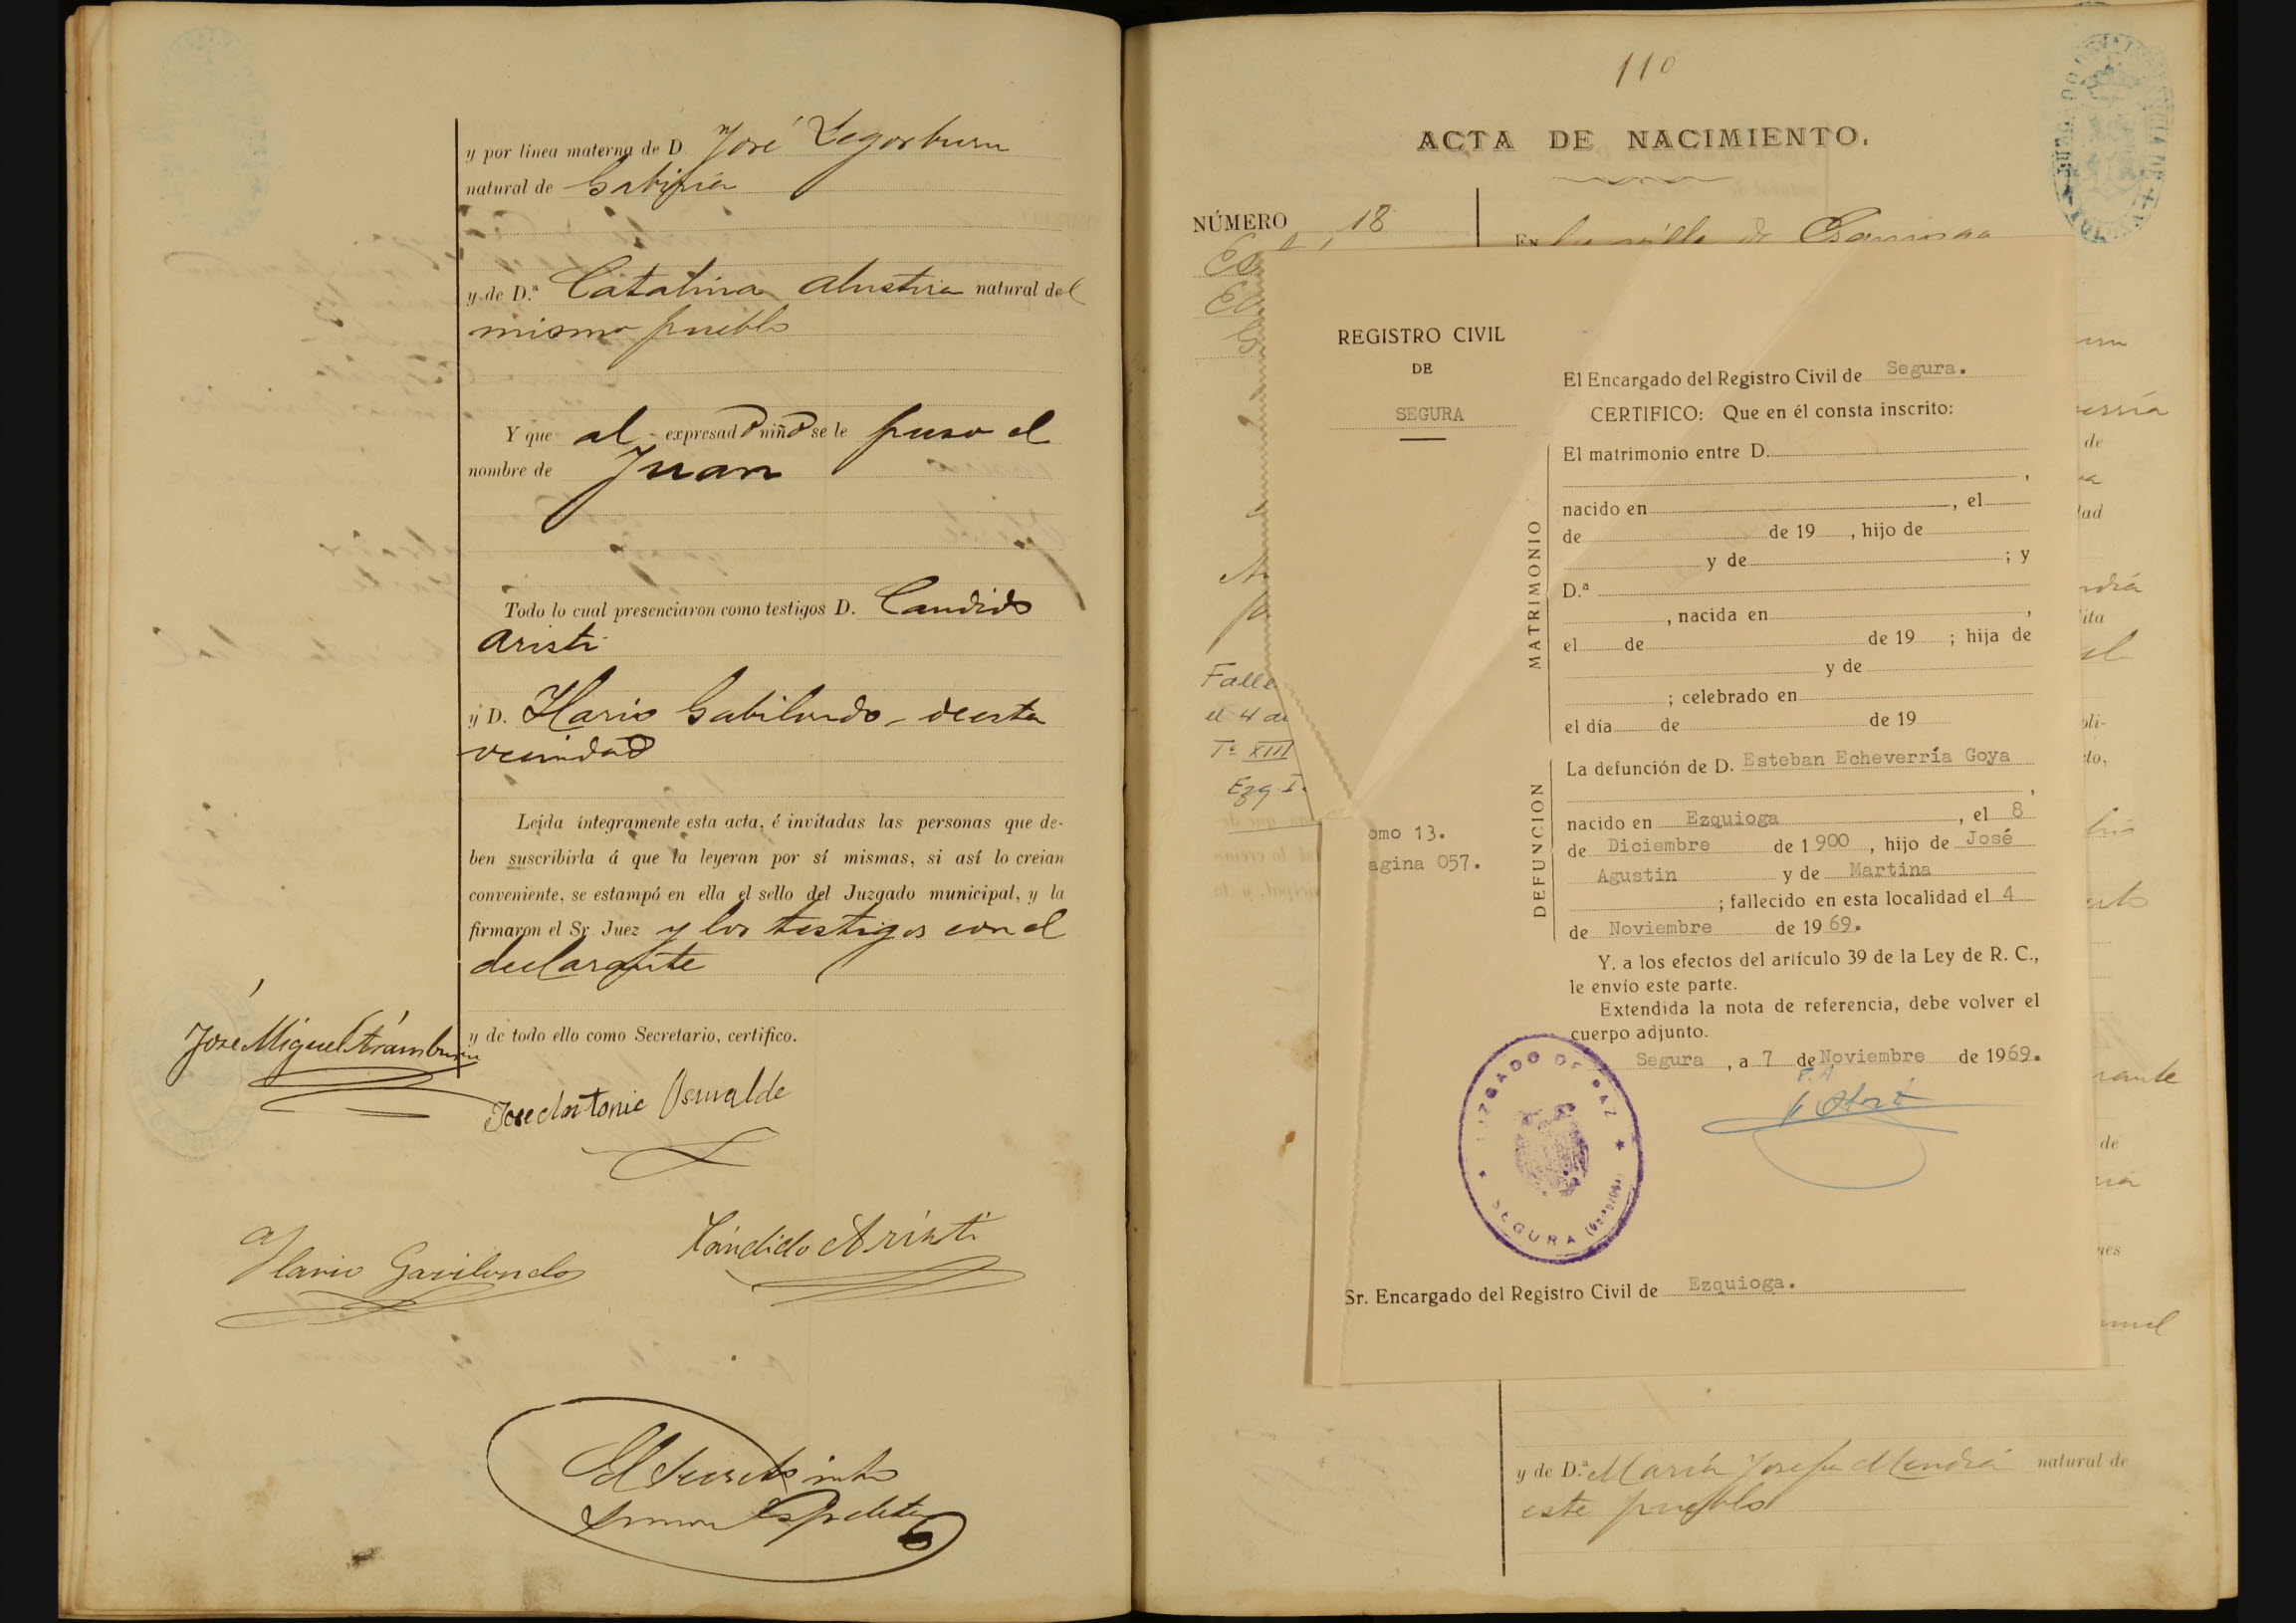 y por línea materna de D. José Legorburu
natural de Gabiria
y de D.ª Catalina Alustiza natural del
mismo pueblo
Y que al expresado niño se le puso el
nombre de Juan
Todo lo cual presenciaron como testigos D. Candido
Aristi
y D. Ilario Gabilondo de esta
vecindad
Leida íntegramente esta acta, é invitadas las personas que de-
ben suscribirla á que la leyeran por sí mismas, si así lo creian
conveniente, se estampó en ella el sello del Juzgado municipal, y la
firmaron el Sr. Juez y los testigos con el
declarante
y de todo ello como Secretario, certifico.
José Miguel Aramburu
Jose Antonio
Ilario Gavilondo
Cándido Aristi
El Secretario
110
ACTA DE NACIMIENTO.
NÚMERO 18
En la villa de
Falle
el 4 de
Tº XIII
Ezq
REGISTRO CIVIL
DE
SEGURA
omo 13.
agina 057.
El Encargado del Registro Civil de Segura.
CERTIFICO: Que en él consta inscrito:
MATRIMONIO
El matrimonio entre D.
,
nacido en , el
de de 19 , hijo de
y de ; y
D.ª
, nacida en ,
el de de 19 ; hija de
y de
; celebrado en
el día de de 19
DEFUNCION
La defunción de D. Esteban Echeverría Goya
,
nacido en Ezquioga , el 8
de Diciembre de 1900 , hijo de José
Agustin y de Martina
; fallecido en esta localidad el 4
de Noviembre de 1969.
Y. a los efectos del artículo 39 de la Ley de R. C.,
le envío este parte.
Extendida la nota de referencia, debe volver el
cuerpo adjunto.
Segura , a 7 de Noviembre de 1969.
P.A
JUZGADO DE PAZ
SEGURA (Guipúzcoa)
Sr. Encargado del Registro Civil de Ezquioga.
y de D.ª María Josefa Mendia natural de
este pueblo